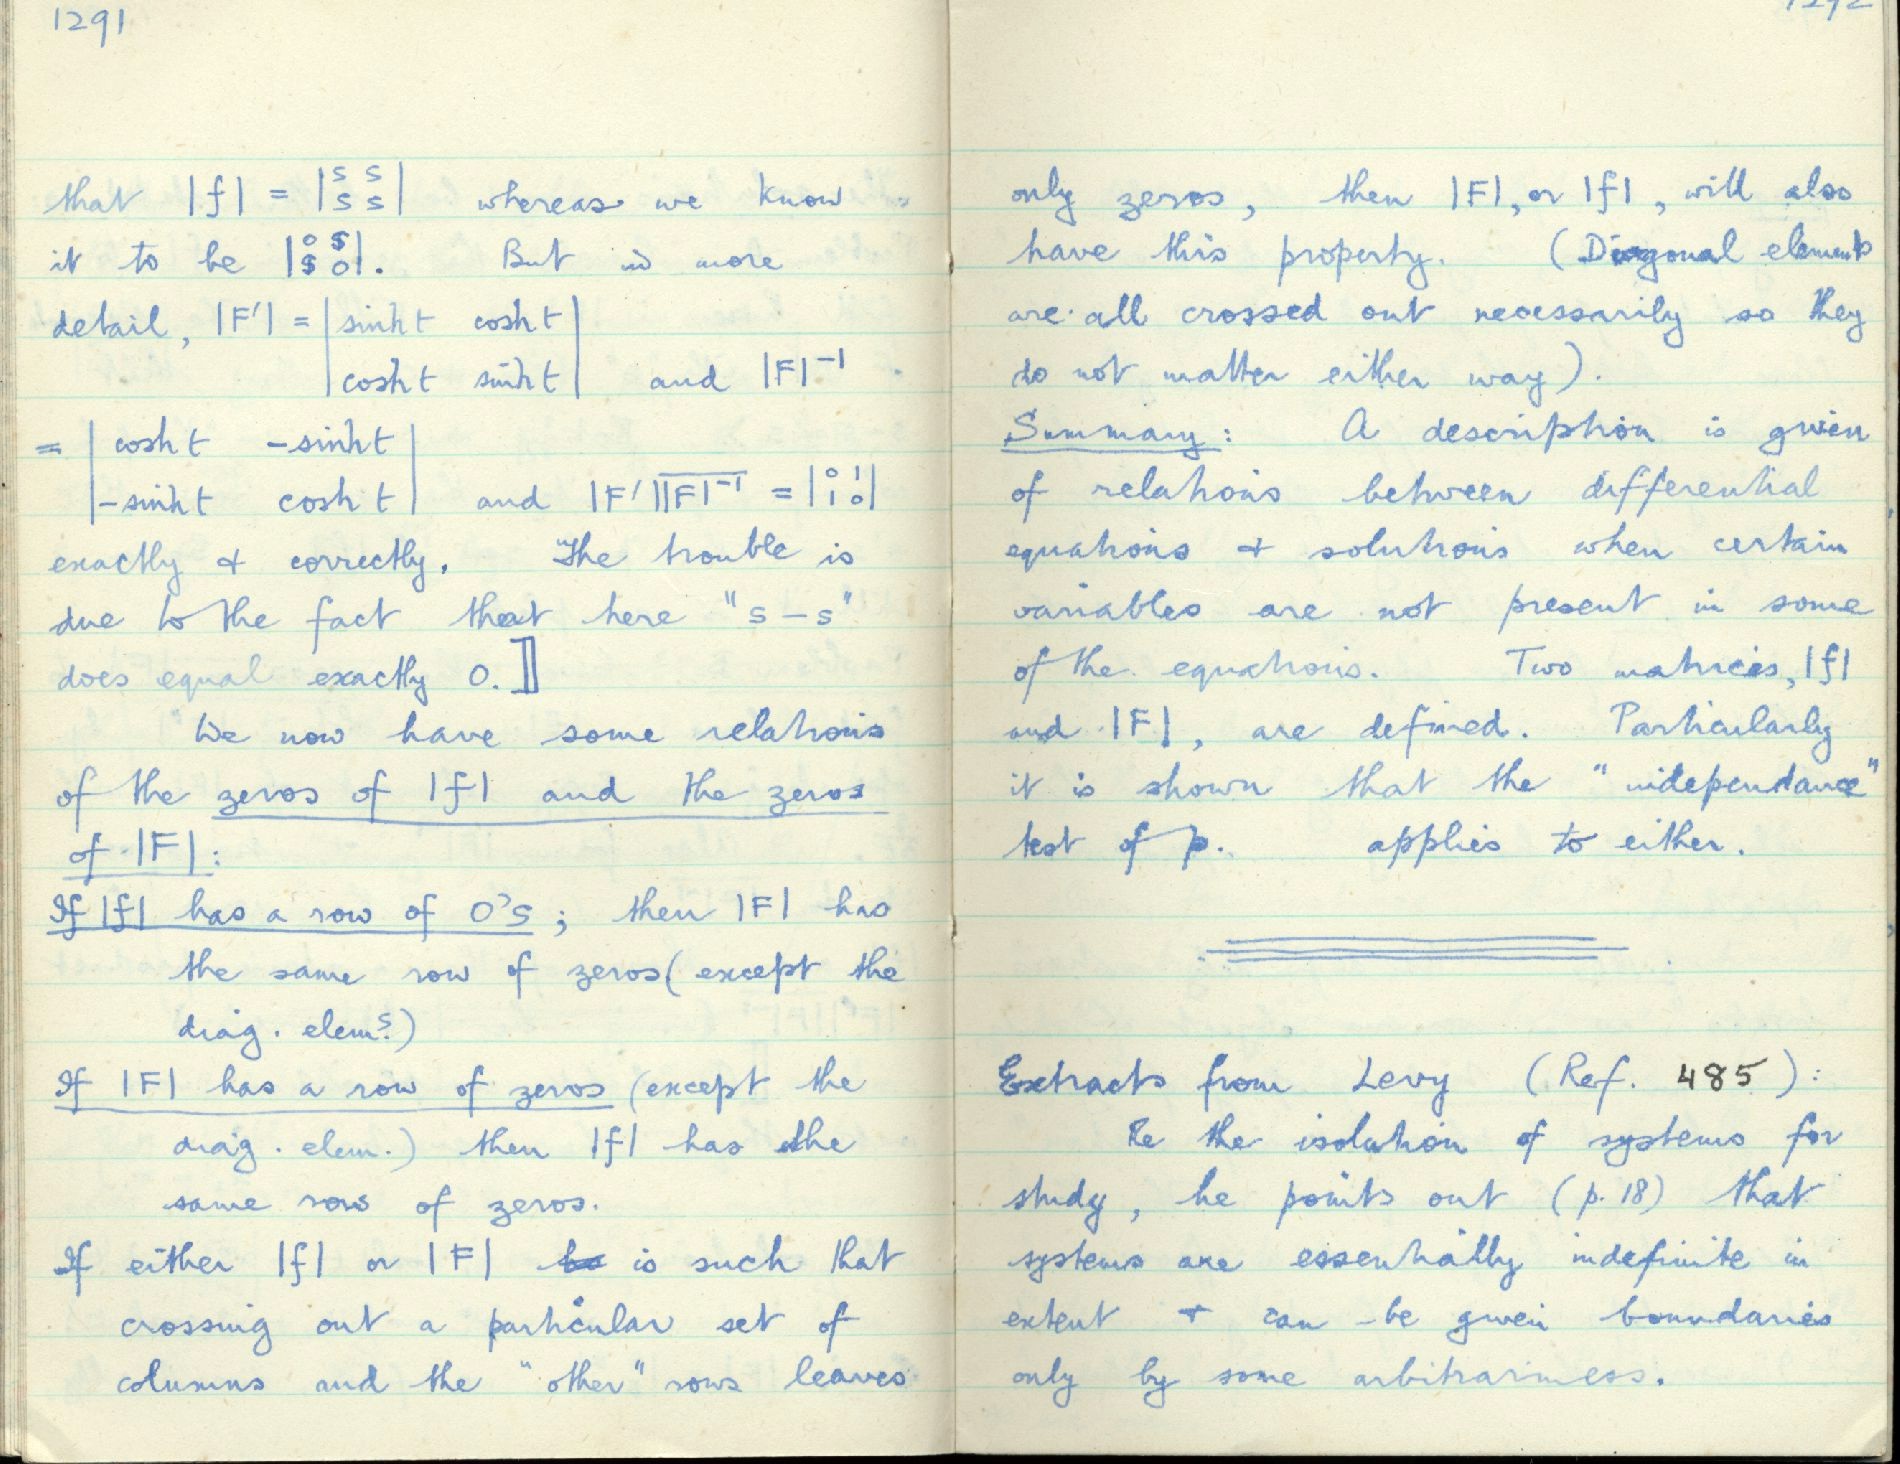 1291
that |f| = |S S
S S| whereas we know
it to be |0 $
$ 0|. But in more
detail, |F'| = |sinh t cosh t|
|cosh t sinh t| and |F|⁻¹
= |cosh t -sinh t|
|-sinh t cosh t| and |F'||F|⁻¹ = |0 1
1 0|
exactly & correctly. The trouble is
due to the fact that here "s – s"
does equal exactly 0.]
We now have some relations
of the zeros of |f| and the zeros
of |F|:
If |f| has a row of 0's; then |F| has
the same row of zeros (except the
diag. elems.)
If |F| has a row of zeros (except the
diag. elem.) then |f| has the
same row of zeros.
If either |f| or |F| is such that
crossing out a particular set of
columns and the "other" rows leaves
1292
only zeros, then |F|, or |f|, will also
have this property. (Diagonal elements
are all crossed out necessarily so they
do not matter either way).
Summary: A description is given
of relations between differential
equations & solutions when certain
variables are not present in some
of the equations. Two matrices, |f|
and |F|, are defined. Particularly
it is shown that the "independance"
test of p. applies to either.
Extracts from Levy (Ref. 485):
Re the isolation of systems for
study, he points out (p. 18) that
systems are essentially indefinite in
extent & can be given boundaries
only by some arbitrariness.